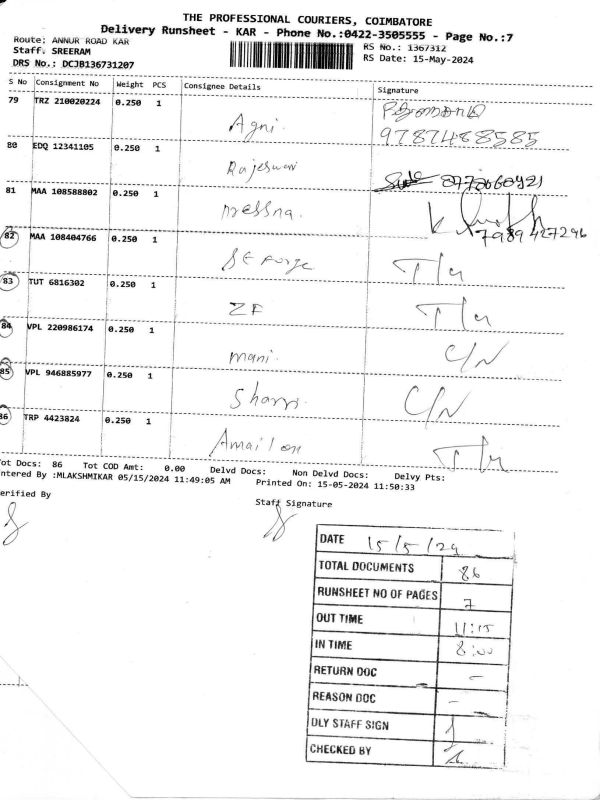 THE PROFESSIONAL COURIERS, COIMBATORE
Delivery Runsheet - KAR - Phone No.:0422-3505555 - Page No.:7
Route: ANNUR ROAD KAR
Staff. SREERAM
DRS No.: DCJB136731207
RS No.: 1367312
RS Date: 15-May-2024
S No Consignment No Weight PCS Consignee Details Signature
79 TRZ 210020224 0.250 1 Agni.
9787488585
80 EDQ 12341105 0.250 1 Rajeswari
81 MAA 108588802 0.250 1
7989427296
82 MAA 108404766 0.250 1 SE Forge T/M
83 TUT 6816302 0.250 1 ZF T/M
84 VPL 220986174 0.250 1 mani. C/N
85 VPL 946885977 0.250 1 C/N
86 TRP 4423824 0.250 1 T/M
ot Docs: 86 Tot COD Amt: 0.00 Delvd Docs: Non Delvd Docs: Delvy Pts:
ntered By :MLAKSHMIKAR 05/15/2024 11:49:05 AM Printed On: 15-05-2024 11:50:33
erified By Staff Signature
DATE 15/5/24
TOTAL DOCUMENTS 86
RUNSHEET NO OF PAGES 7
OUT TIME 11:15
IN TIME 8:00
RETURN DOC -
REASON DOC -
DLY STAFF SIGN
CHECKED BY